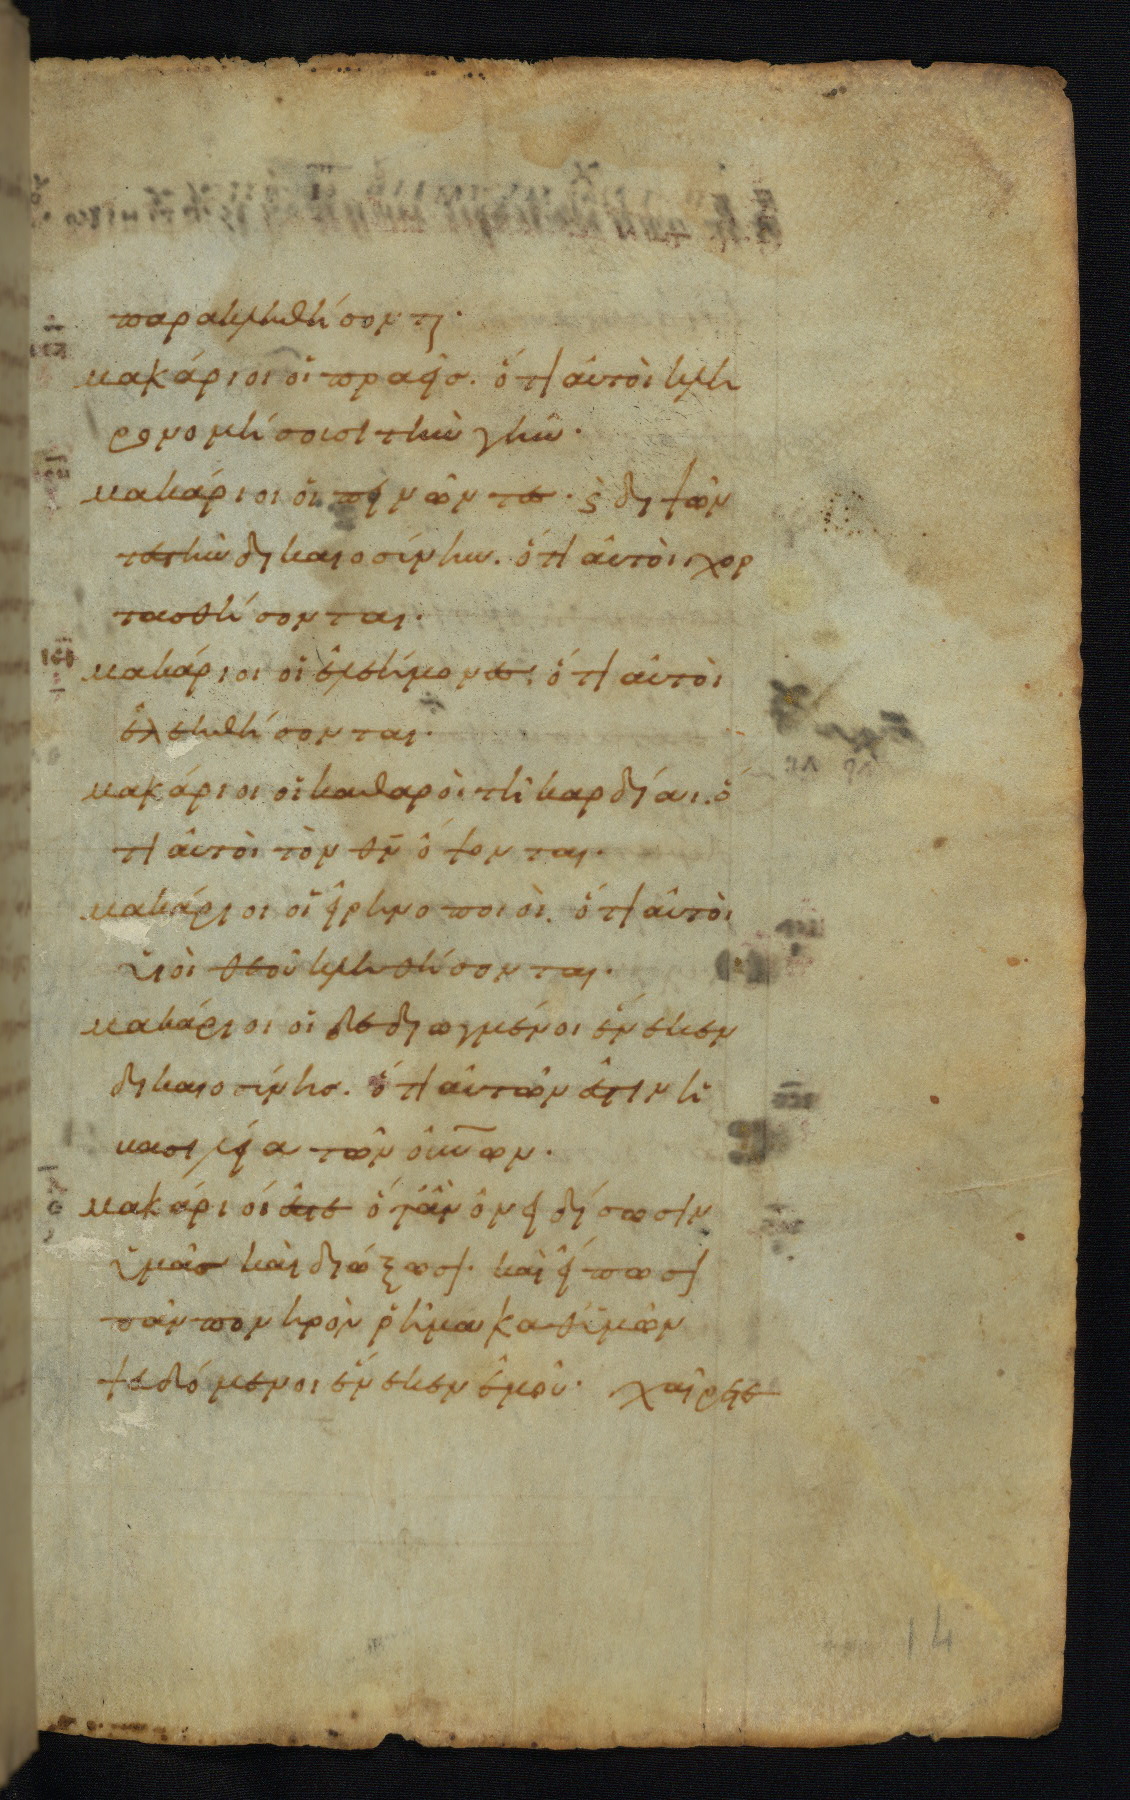 παρακληθήσοντ(αι)·
μακάριοι οἱ πραεῖσ. ὅτι αὐτοὶ κλη
ρονομήσουσι τὴν γῆν·
μακάριοι οἱ πεινῶντεσ· ϛ διψῶν
τεσ τὴν δικαιοσύνην. ὅτι αὐτοὶ χορ
τασθήσονται·
μακάριοι οἱ ἐλεήμονεσ. ὅτι αὐτοὶ
ἐλεηθήσονται·
μακάριοι οἱ καθαροὶ τῆ καρδίαι. ὅ
τι αὐτοὶ τὸν θν̄ ὄψονται·
μακάριοι οἱ εἰρηνοποιοὶ. ὅτι αὐτοὶ
ϋἱοὶ θεοῦ κληθήσονται·
μακάριοι οἱ δεδιωγμένοι ἕνεκεν
δικαιοσύνησ. ὅτι αὐτῶν ἐστιν ἡ
βασιλεία τῶν οὐν̄ων·
μακάριοί ἐστε ὅταν ὀνειδίσωσιν
ϋμᾶσ καὶ διώξωσι· καὶ εἴπωσι
πᾶν πονηρὸν ῥῆμα καθ' ϋμῶν
ψευδόμενοι ἕνεκεν ἐμοῦ· χαίρετε
14